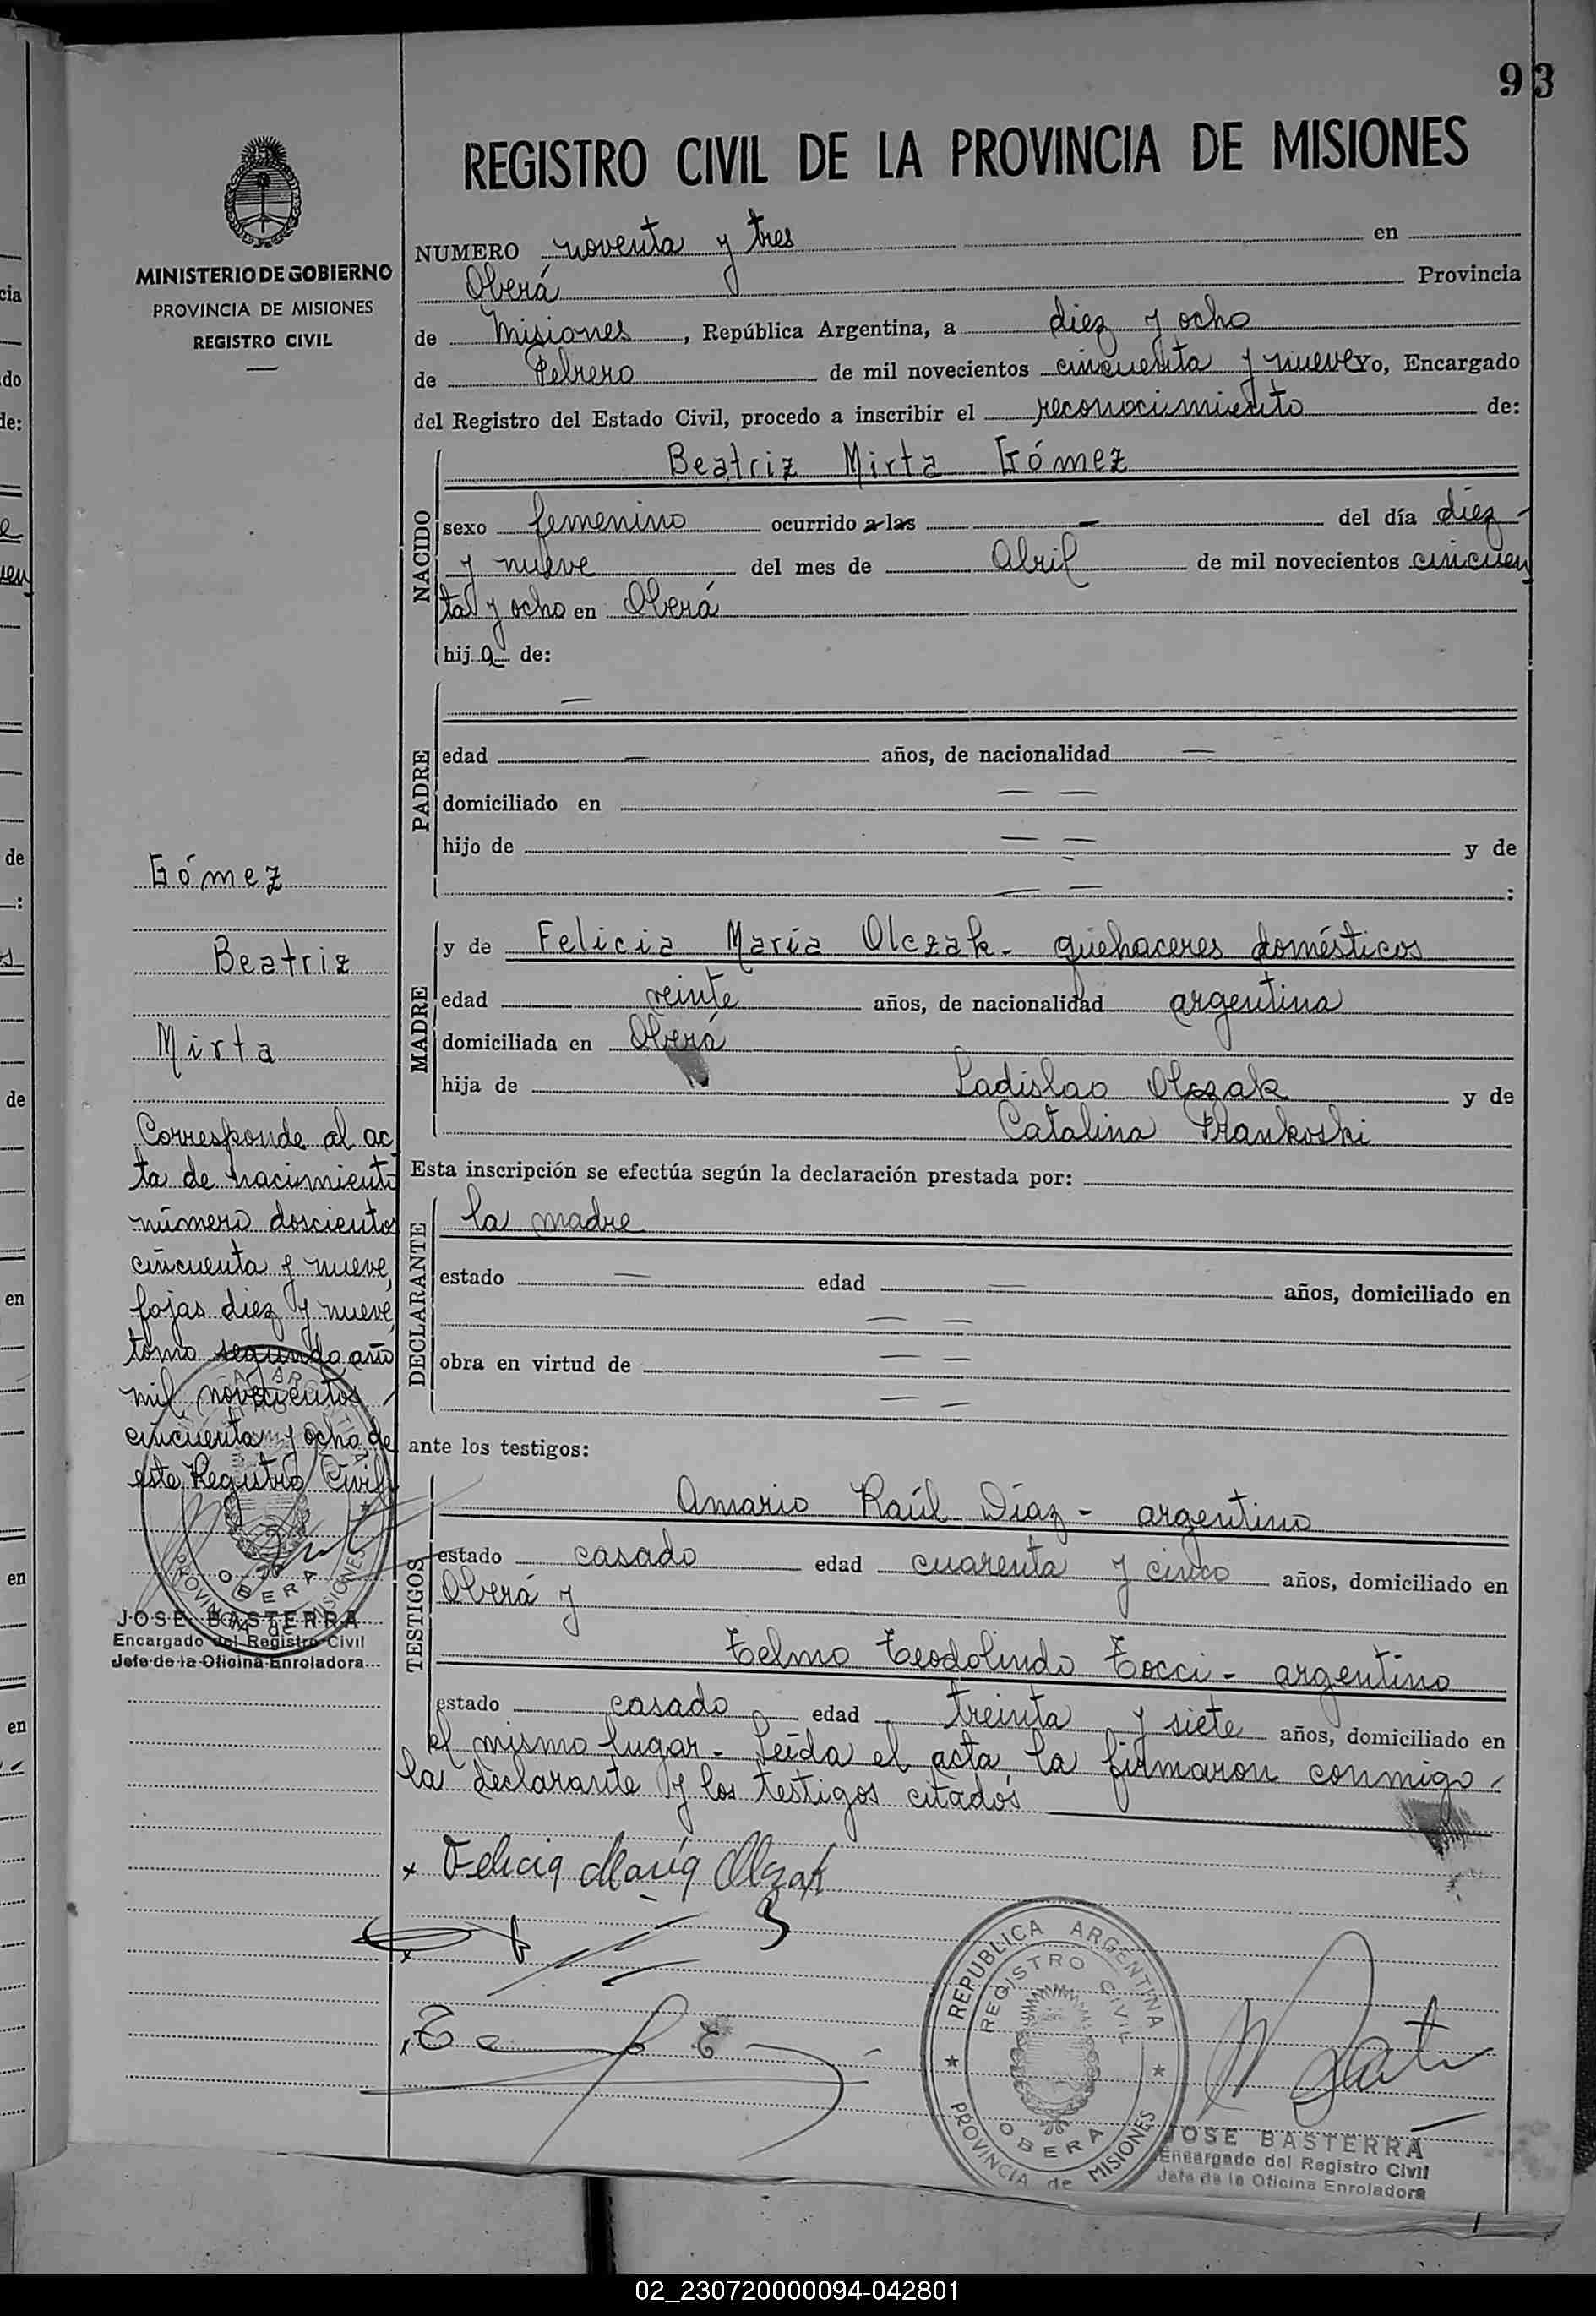 93
REGISTRO CIVIL DE LA PROVINCIA DE MISIONES
MINISTERIO DE GOBIERNO
PROVINCIA DE MISIONES
REGISTRO CIVIL
NUMERO noventa y tres en
Oberá Provincia
de Misiones, República Argentina, a diez y ocho
de Febrero de mil novecientos cincuenta y nueve yo, Encargado
del Registro del Estado Civil, procedo a inscribir el reconocimiento de:
NACIDO
Beatriz Mirta Gómez
sexo femenino ocurrido a las — del día diez
y nueve del mes de Abril de mil novecientos cincuen
ta y ocho en Oberá
hija de:
PADRE
—
edad — años, de nacionalidad —
domiciliado en — —
hijo de — — y de
— — :
MADRE
y de Felicia María Olczak - quehaceres domésticos
edad veinte años, de nacionalidad argentina
domiciliada en Oberá
hija de Ladislao Olczak y de
Catalina Frankoski
Esta inscripción se efectúa según la declaración prestada por:
DECLARANTE
la madre
estado — edad — años, domiciliado en
— —
obra en virtud de — —
— —
ante los testigos:
TESTIGOS
Amario Raúl Díaz - argentino
estado casado edad cuarenta y cinco años, domiciliado en
Oberá y
Telmo Teodolindo Tocci - argentino
estado casado edad treinta y siete años, domiciliado en
el mismo lugar - Leída el acta la firmaron conmigo
la declarante y los testigos citados
x Felicia María Olczak
Gómez
Beatriz
Mirta
Corresponde al ac
ta de nacimiento
número doscientos
cincuenta y nueve,
fojas diez y nueve,
tomo segundo, año
mil novecientos
cincuenta y ocho, de
este Registro Civil
OBERA
PROVINCIA de MISIONES
JOSE BASTERRA
Encargado del Registro Civil
Jefe de la Oficina Enroladora
REPUBLICA ARGENTINA
REGISTRO CIVIL
OBERA
PROVINCIA de MISIONES
JOSE BASTERRA
Encargado del Registro Civil
Jefe de la Oficina Enroladora
02_230720000094-042801